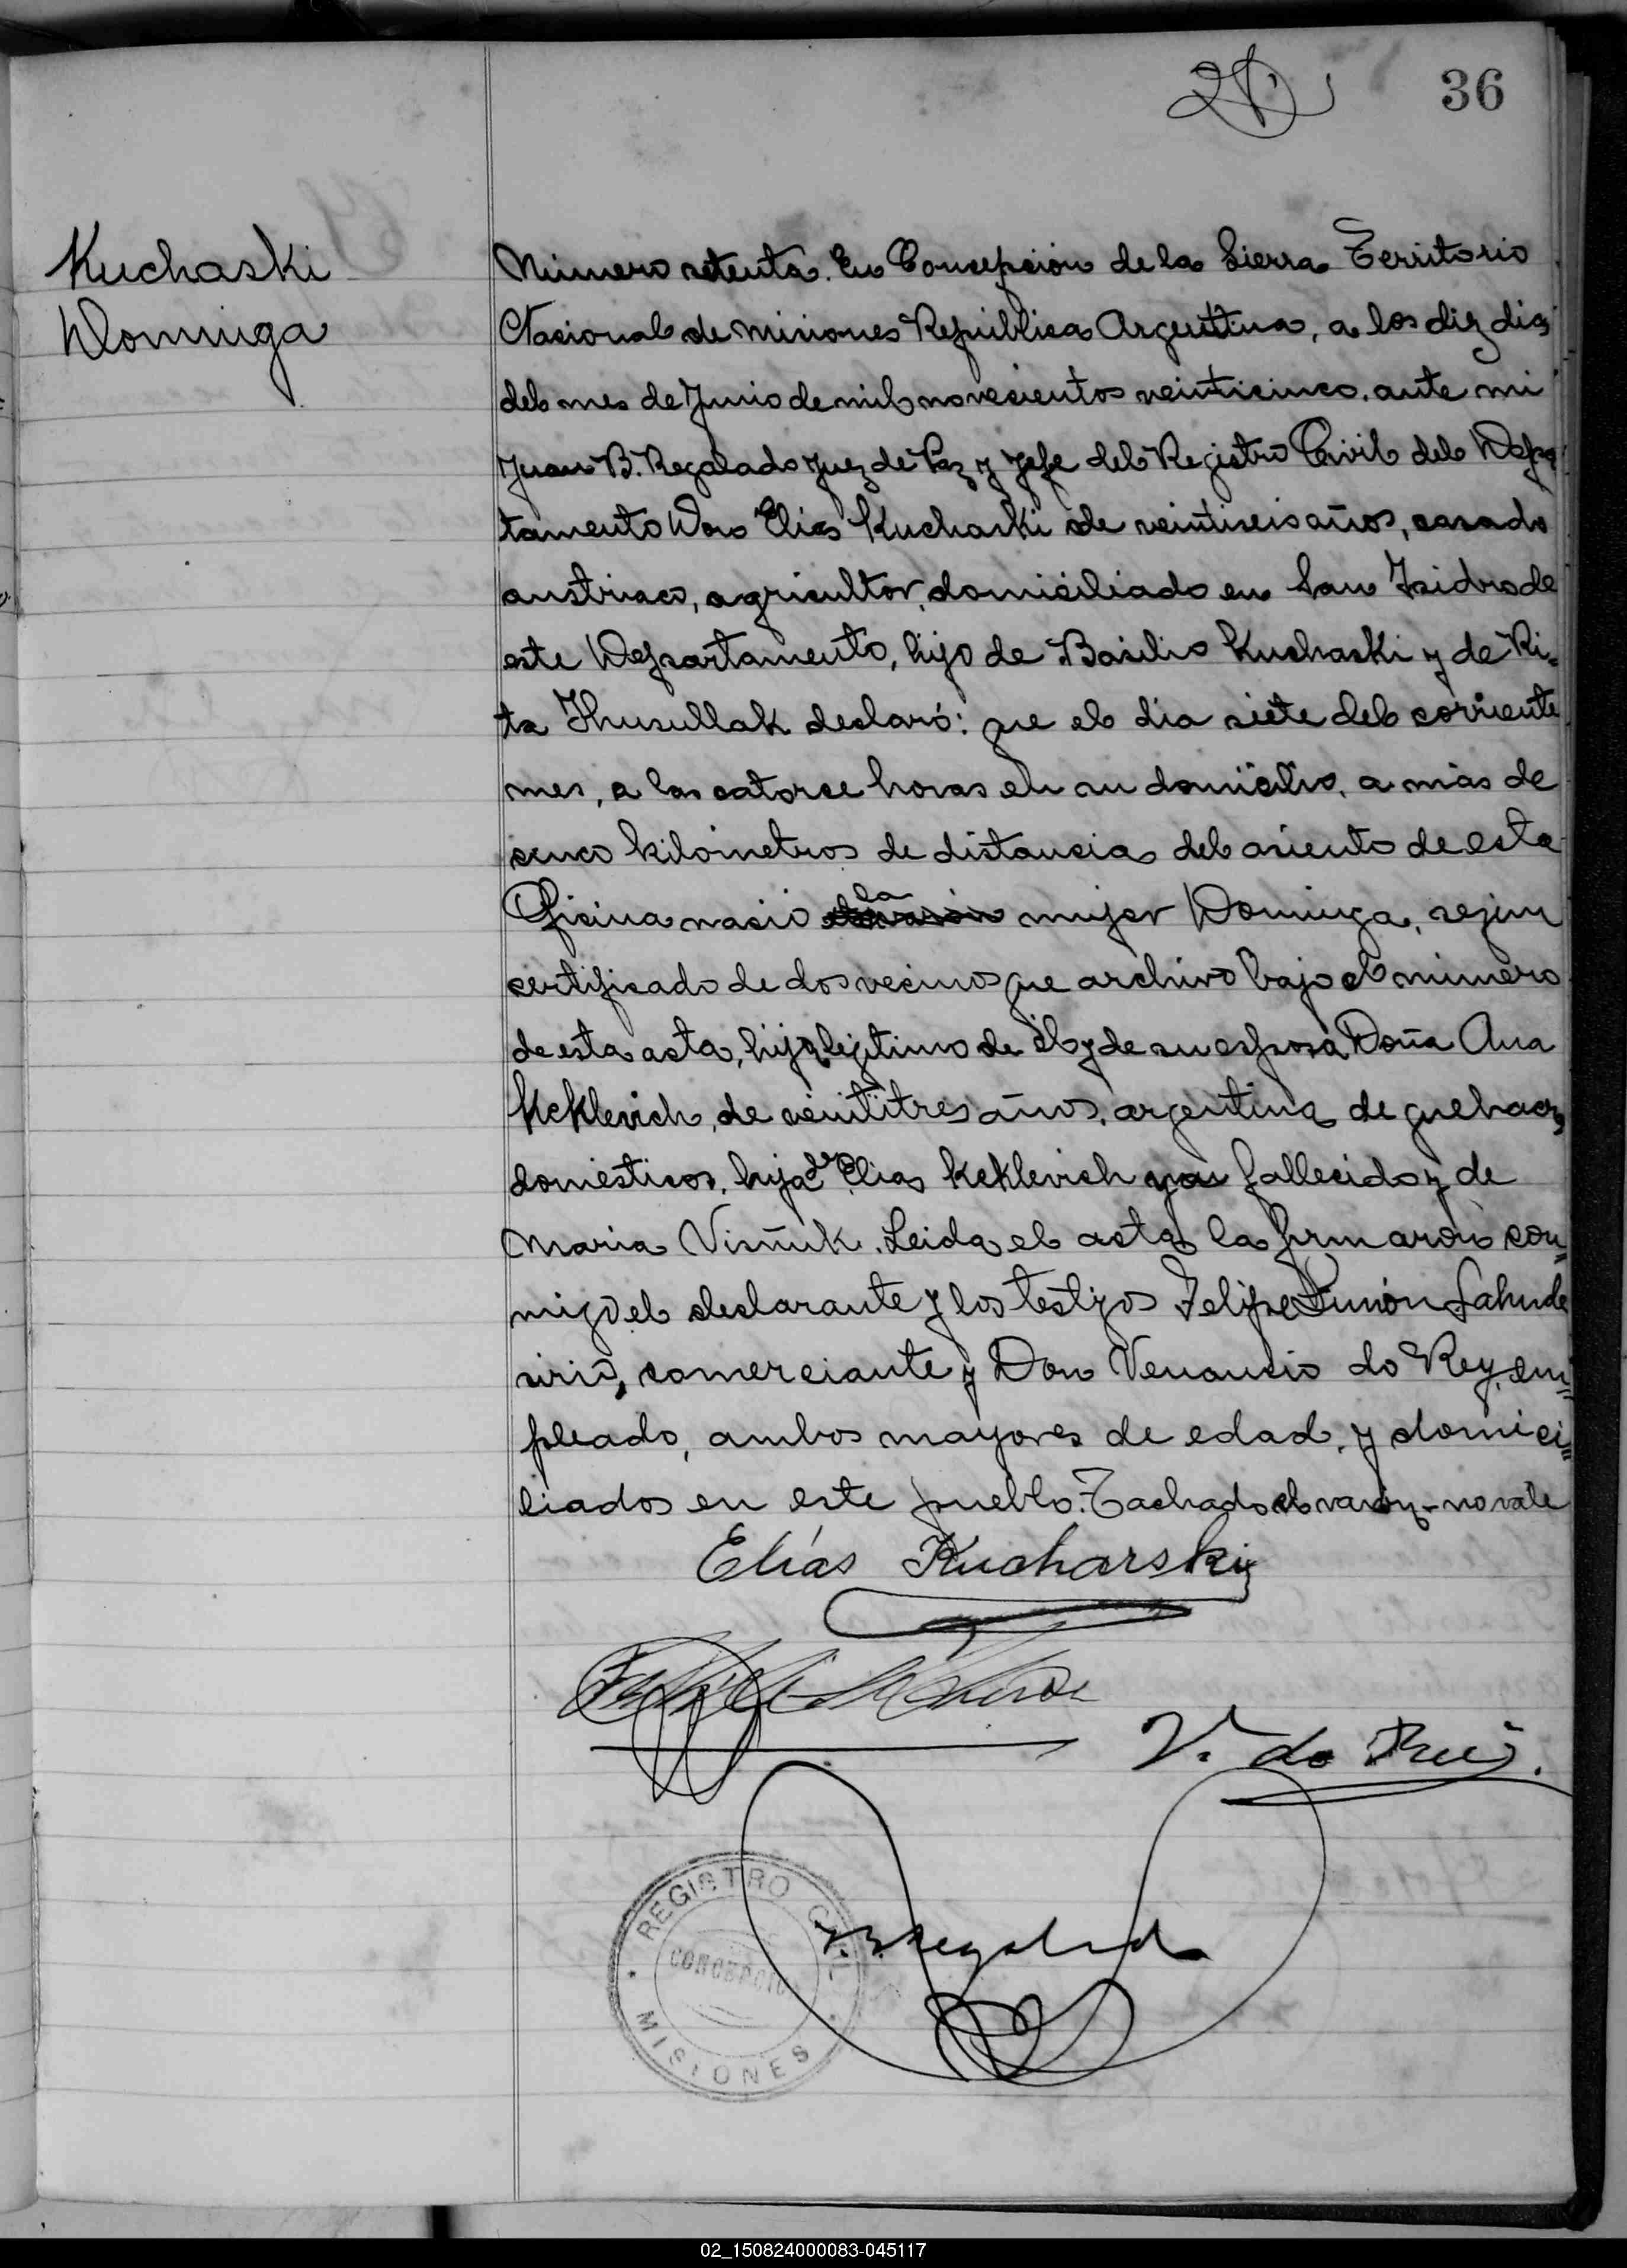 36
Kuchaski
Dominga
Número setenta. En Concepción de la Sierra Territorio
Nacional de Misiones República Argentina, a los diez dias
del mes de Junio de mil novecientos veinticinco, ante mi
Juan B. Regalado Juez de Paz y Jefe del Registro Civil del Depar
tamento Don Elias Kuchaski de veintiseis años, casado
austriaco, agricultor, domiciliado en San Isidro de
este Departamento, hijo de Basilio Kuchaski y de Ri-
ta declaró: que el dia siete del corriente
mes, a las catorce horas en su domicilio, a más de
cinco kilómetros de distancia del asiento de esta
Oficina nació el varón la mujer Dominga, segun
certificado de dos vecinos que archivo bajo el número
de esta acta, hija lejitimo de él y de su esposa Doña Ana
Keklevich, de veintitres años, argentina de quehaceres
domésticos, hija de Elias Keklevich ya fallecido y de
Maria Visñuk. Leida el acta la firmaron con=
migo el declarante y los testigos Felipe Simón Sahude
sirio, comerciante y Don Venancio do Rey, em=
pleado, ambos mayores de edad, y domici=
liados en este pueblo. Tachado el varón - no vale
Elías Kucharski
V. do Rey.
JBRegalado
REGISTRO CIVIL
CONCEPCION
MISIONES
02_150824000083-045117